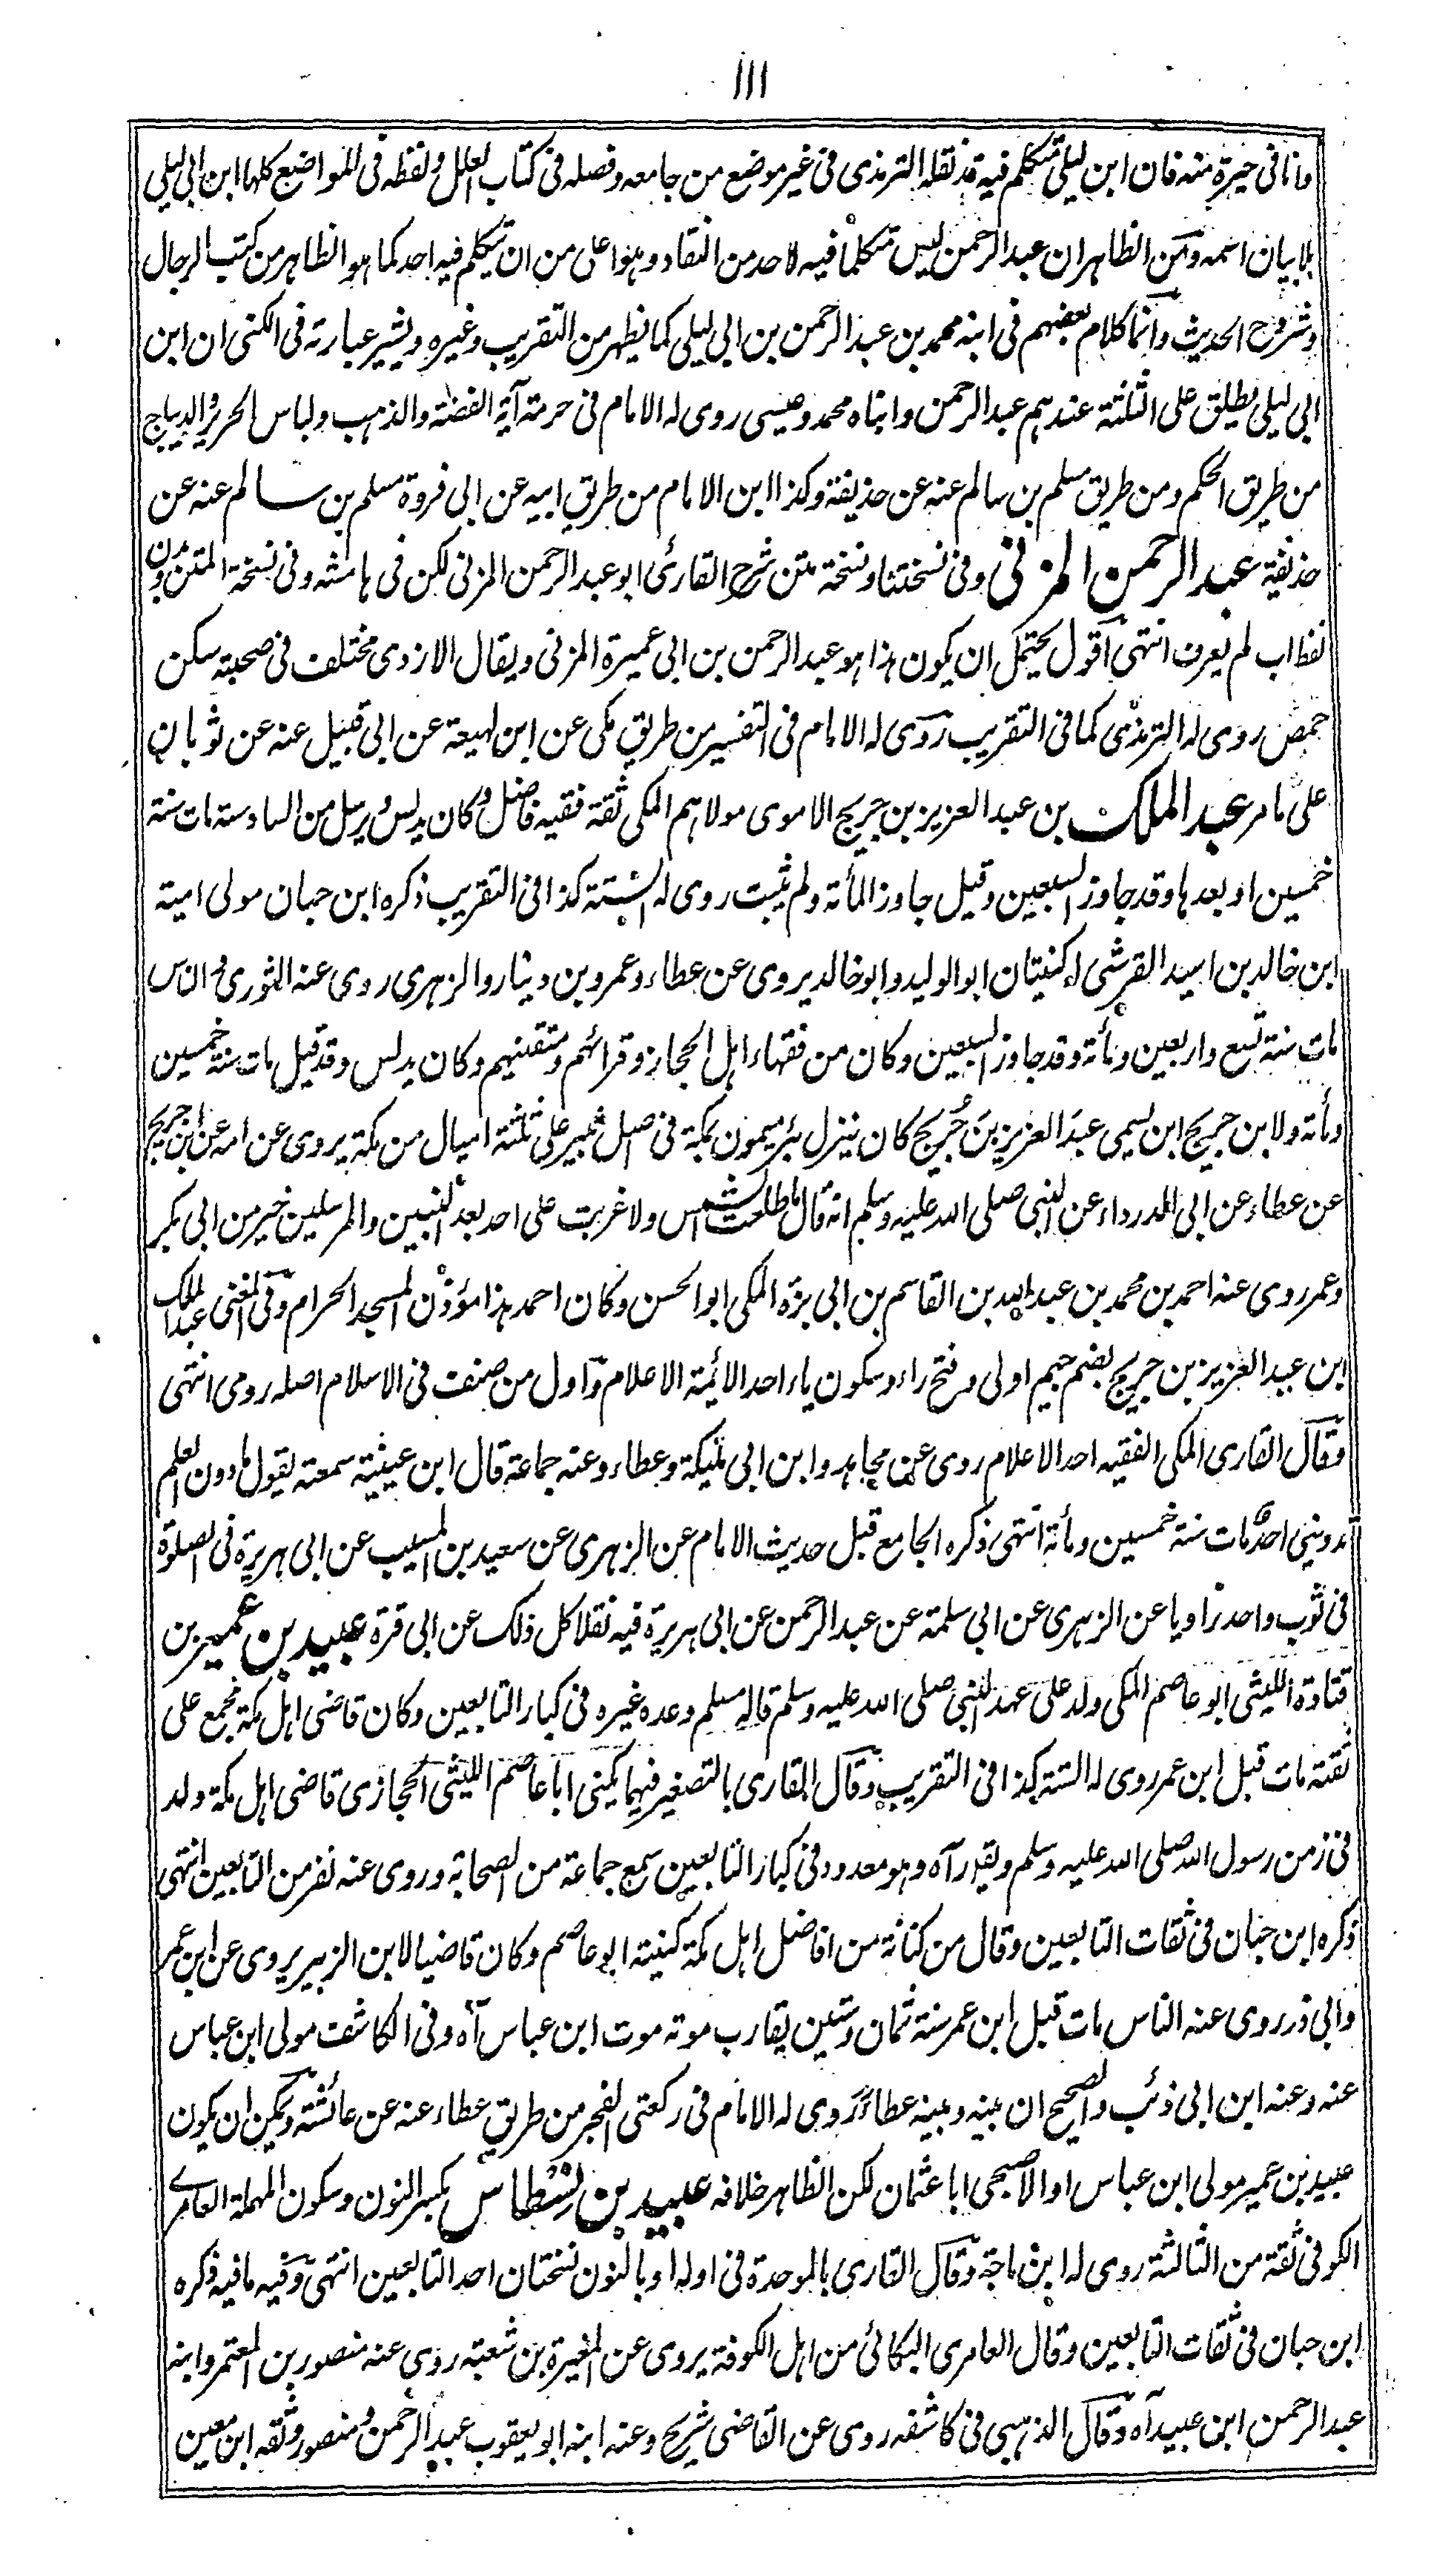 ١١١
وانا فى حيرة منه فان ابن ليلى متكلم فيه قد نقله الترمذى فى غير موضع من جامعه وفصله فى كتاب العلل ولفظه فى المواضع كلها ابن ابى ليلى
بلا بيان اسمه ومن الظاهر ان عبد الرحمن ليس متكلما فيه لاحد من النقاد وهو اعلى من ان يتكلم فيه احد كما هو الظاهر من كتب الرجال
وشروح الحديث وانما كلام بعضهم فى ابنه محمد بن عبد الرحمن بن ابى ليلى كما يظهر من التقريب وغيره ويشير عبارته فى الكنى ان ابن
ابى ليلى يطلق على الثلثة عندهم عبد الرحمن وابناه محمد وعيسى روى له الامام فى حرمة آنية الفضة والذهب ولباس الحرير والديباج
من طريق الحكم ومن طريق مسلم بن سالم عنه عن حذيفة وكذا ابن الامام من طريق ابيه عن ابى فروة مسلم بن سالم عنه عن
حذيفة عبد الرحمن المزنى وفى نسختنا ونسخة متن شرح القارئ ابو عبد الرحمن المزنى لكن فى هامشه وفى نسخة المتن بدون
لفظ اب لم يعرف انتهى اقول يحتمل ان يكون هذا هو عبد الرحمن بن ابى عميرة المزنى ويقال الازدى مختلف فى صحبته سكن
حمص روى له الترمذى كما فى التقريب روى له الامام فى التفسير من طريق مكى عن ابن لهيعة عن ابى قبيل عنه عن ثوبان
على ما مر عبد الملك بن عبد العزيز بن جريج الاموى مولاهم المكى ثقة فقيه فاضل وكان يدلس ويرسل من السادسة مات سنة
خمسين او بعدها وقد جاوز السبعين وقيل جاوز المأة ولم يثبت روى له الستة كذا فى التقريب ذكره ابن حبان مولى امية
ابن خالد بن اسيد القرشى له كنيتان ابو الوليد وابو خالد يروى عن عطاء وعمرو بن دينار والزهرى روى عنه الثورى والناس
مات سنة تسع واربعين ومأة وقد جاوز السبعين وكان من فقهاء اهل الحجاز وقرائهم ومتقنيهم وكان يدلس وقد قيل مات سنة خمسين
ومأة ولابن جريج ابن يسمى عبد العزيز بن جريج كان ينزل بئر ميمون بمكة فى اصل ثبير على ثلثة اميال من مكة يروى عن امه عن ابن جريج
عن عطاء عن ابى الدرداء عن النبى صلى الله عليه وسلم انه قال ما طلعت الشمس ولا غربت على احد بعد النبيين والمرسلين خير من ابى بكر
وعمر روى عنه احمد بن محمد بن عبد الله بن القاسم بن ابى بزه المكى ابو الحسن وكان احمد هذا مؤذن المسجد الحرام وفى المغنى عبد الملك
ابن عبد العزيز بن جريج بضم جيم اولى وفتح راء وسكون ياء احد الائمة الاعلام واول من صنف فى الاسلام اصله رومى انتهى
وقال القارى المكى الفقيه احد الاعلام روى عن مجاهد وابن ابى مليكة وعطاء وعنه جماعة قال ابن عيينة سمعته يقول ما دون العلم
تدوينى احد مات سنة خمسين ومأة انتهى ذكره الجامع قبل حديث الامام عن الزهرى عن سعيد بن المسيب عن ابى هريرة فى الصلوة
فى ثوب واحد راويا عن الزهرى عن ابى سلمة عن عبد الرحمن عن ابى هريرة فيه نقلا كل ذلك عن ابى قرة عبيد بن عمير بن
قتادة الليثى ابو عاصم المكى ولد على عهد النبى صلى الله عليه وسلم قاله مسلم وعده غيره فى كبار التابعين وكان قاضى اهل مكة مجمع على
ثقته مات قبل ابن عمر روى له الستة كذا فى التقريب وقال القارى بالتصغير فيهما يكنى ابا عاصم الليثى الحجازى قاضى اهل مكة ولد
فى زمن رسول الله صلى الله عليه وسلم ويقد رآه وهو معدود فى كبار التابعين سمع جماعة من الصحابة وروى عنه نفر من التابعين انتهى
ذكره ابن حبان فى ثقات التابعين وقال من كنانة من افاضل اهل مكة كنيته ابو عاصم وكان قاضيا لابن الزبير يروى عن ابن عمر
وابى ذر روى عنه الناس مات قبل ابن عمر سنة ثمان وستين يقارب موته موت ابن عباس آه وفى الكاشف مولى ابن عباس
عنه وعنه ابن ابى ذئب والصحيح ان بينه وبينه عطاء روى له الامام فى ركعتى الفجر من طريق عطاء عنه عن عائشة ويمكن ان يكون
عبيد بن عمير مولى ابن عباس او الاصبحى ابا عثمان لكن الظاهر خلافه عبيد بن نسطاس بكسر النون وسكون المهملة العامرى
الكوفى ثقة من الثالثة روى له ابن ماجة وقال القارى بالموحدة فى اوله او بالنون نسختان احد التابعين انتهى وفيه ما فيه ذكره
ابن حبان فى ثقات التابعين وقال العامرى البكائى من اهل الكوفة يروى عن المغيرة بن شعبة روى عنه منصور بن المعتمر وابنه
عبد الرحمن ابن عبيد آه وقال الذهبى فى كاشفه روى عن القاضى شريح وعنه ابنه ابو يعقوب عبد الرحمن ومنصور وثقه ابن معين